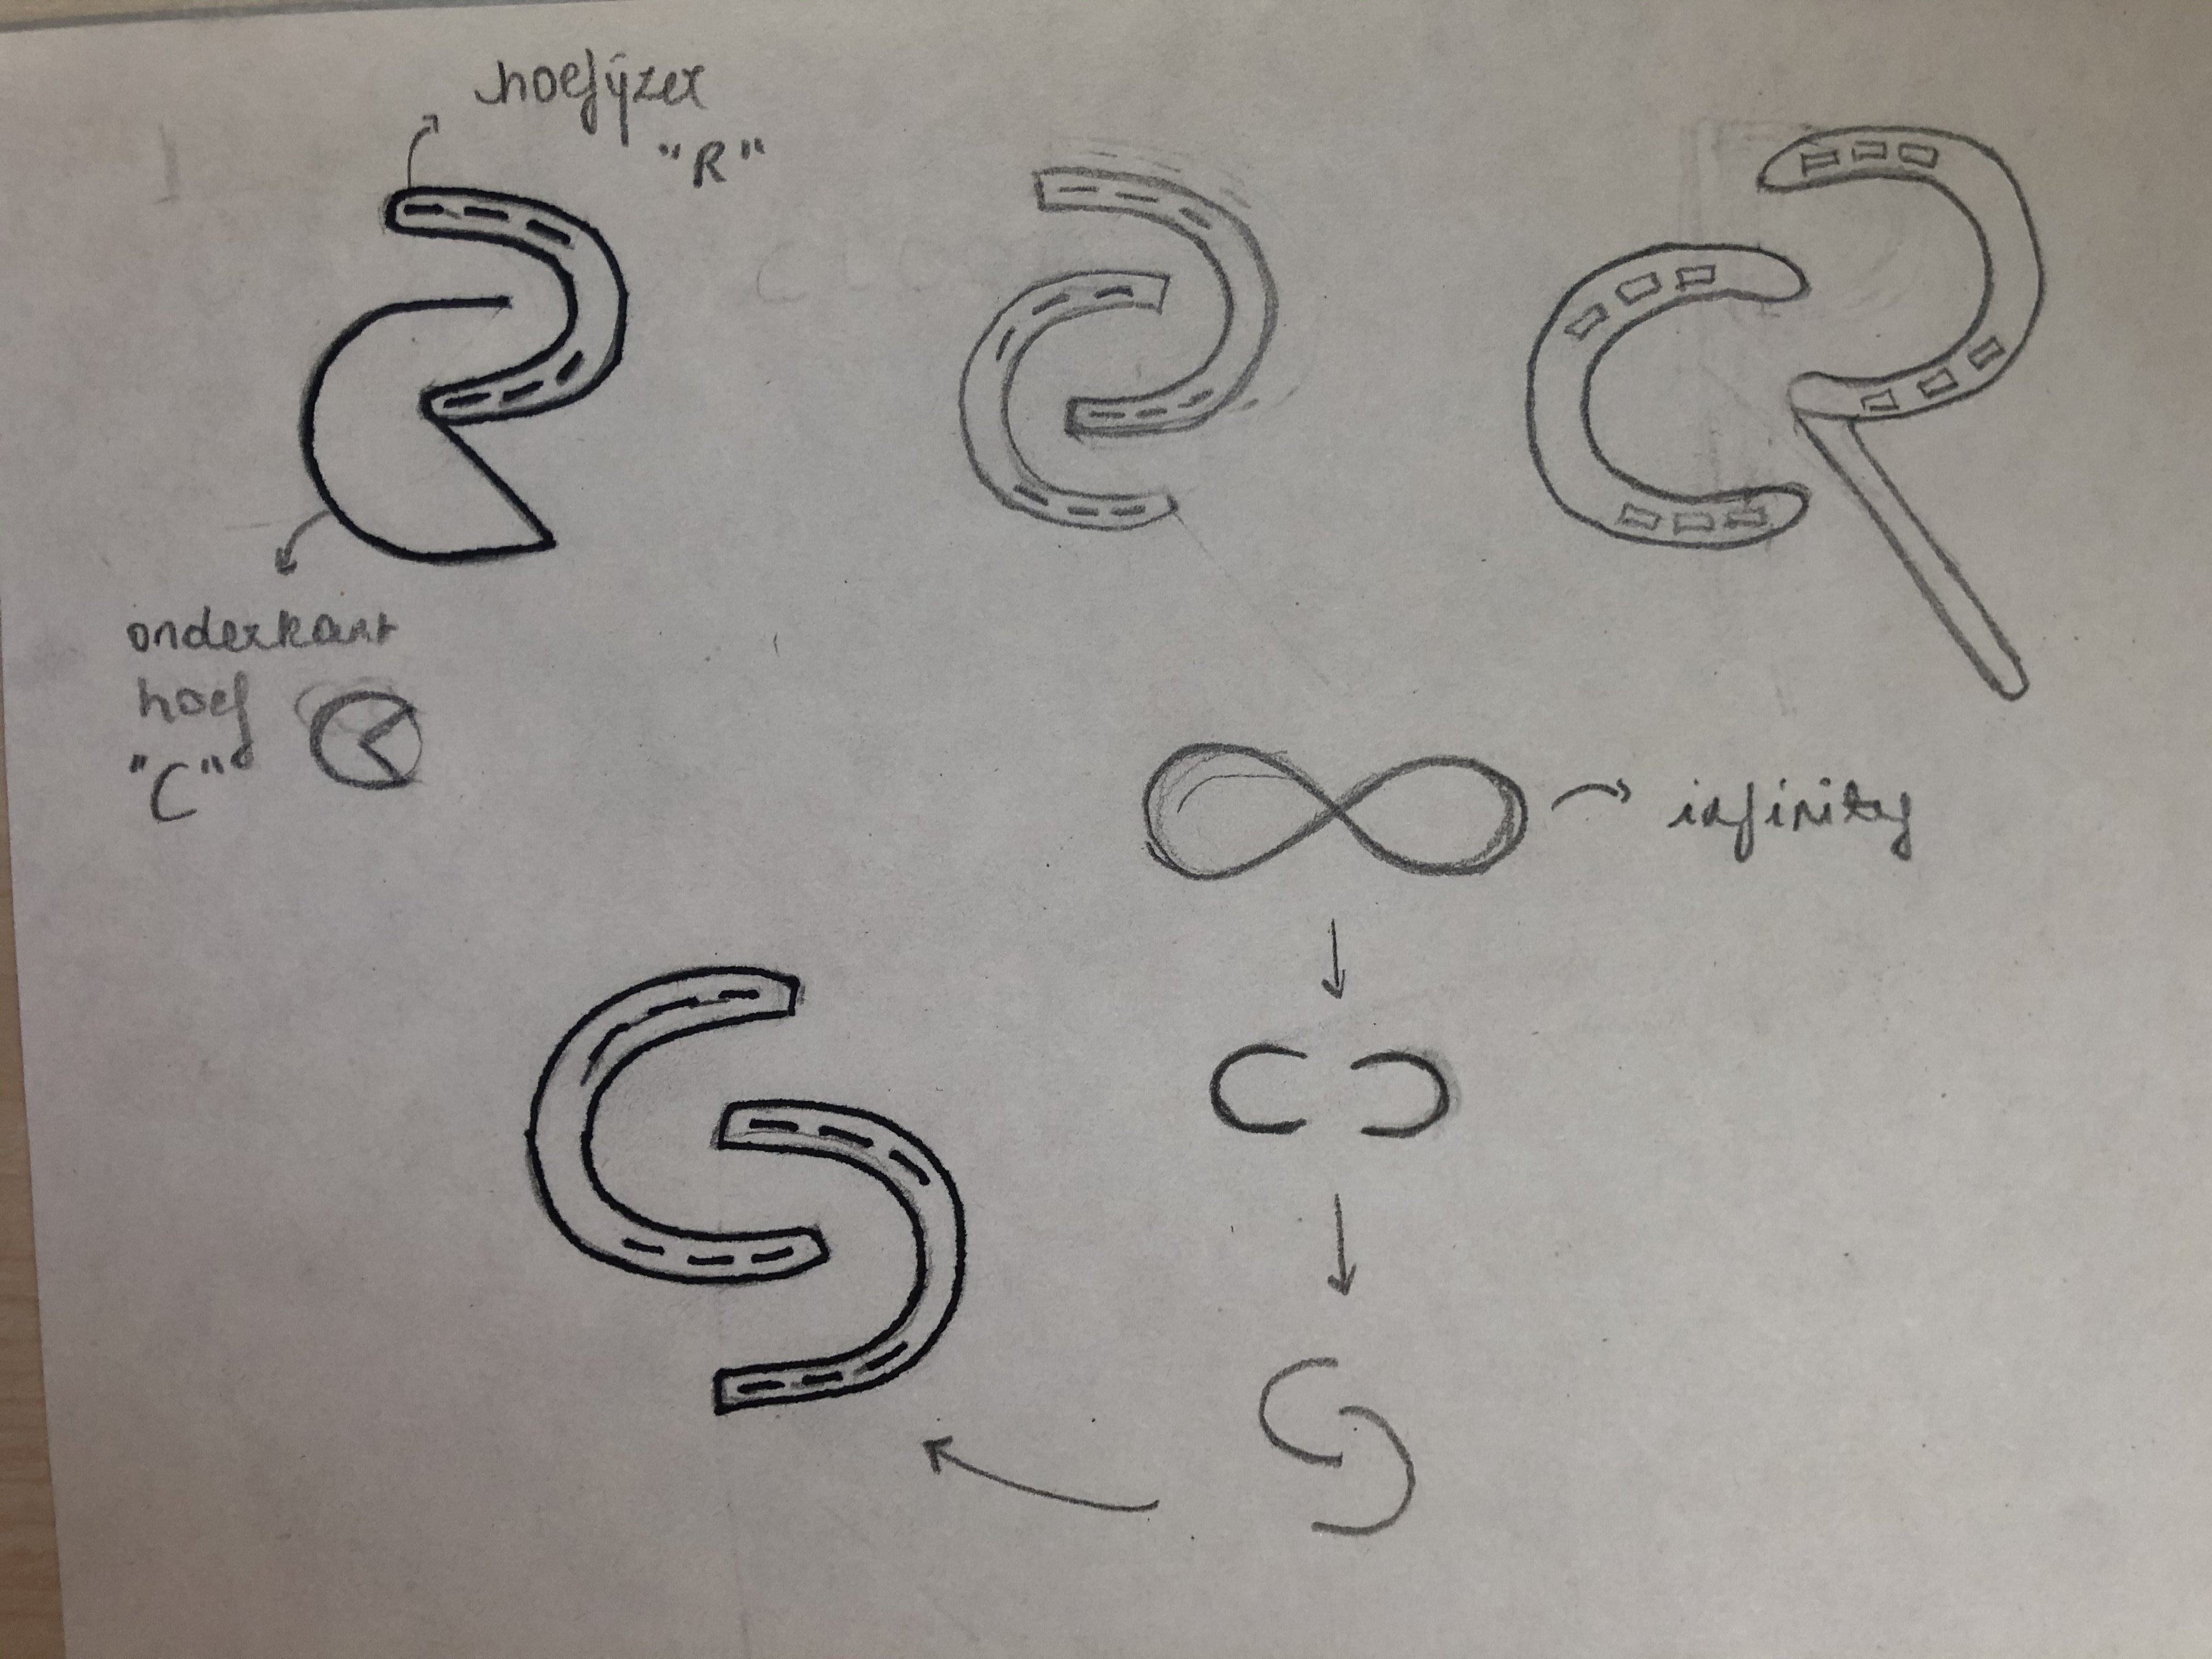 hoefijzer
"R"
onderkant
hoef
"C"
infinity